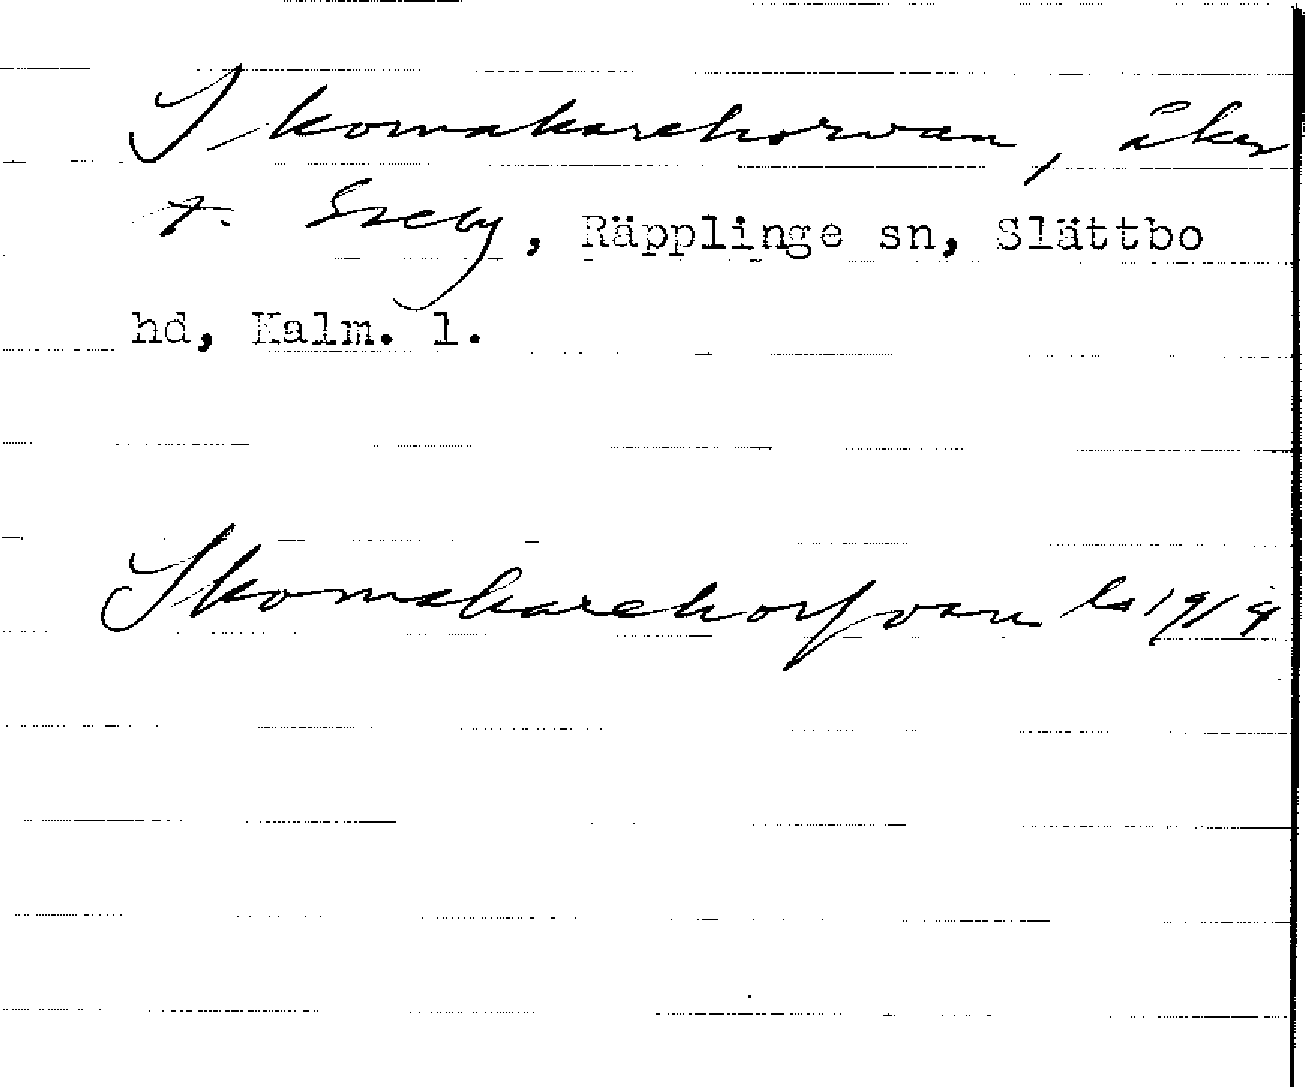 Skomakarehorvan, åker
t. Sveby, Räpplinge sn, Slättbo
hd, Kalm. l.
Skomakarehorfvan la 1919